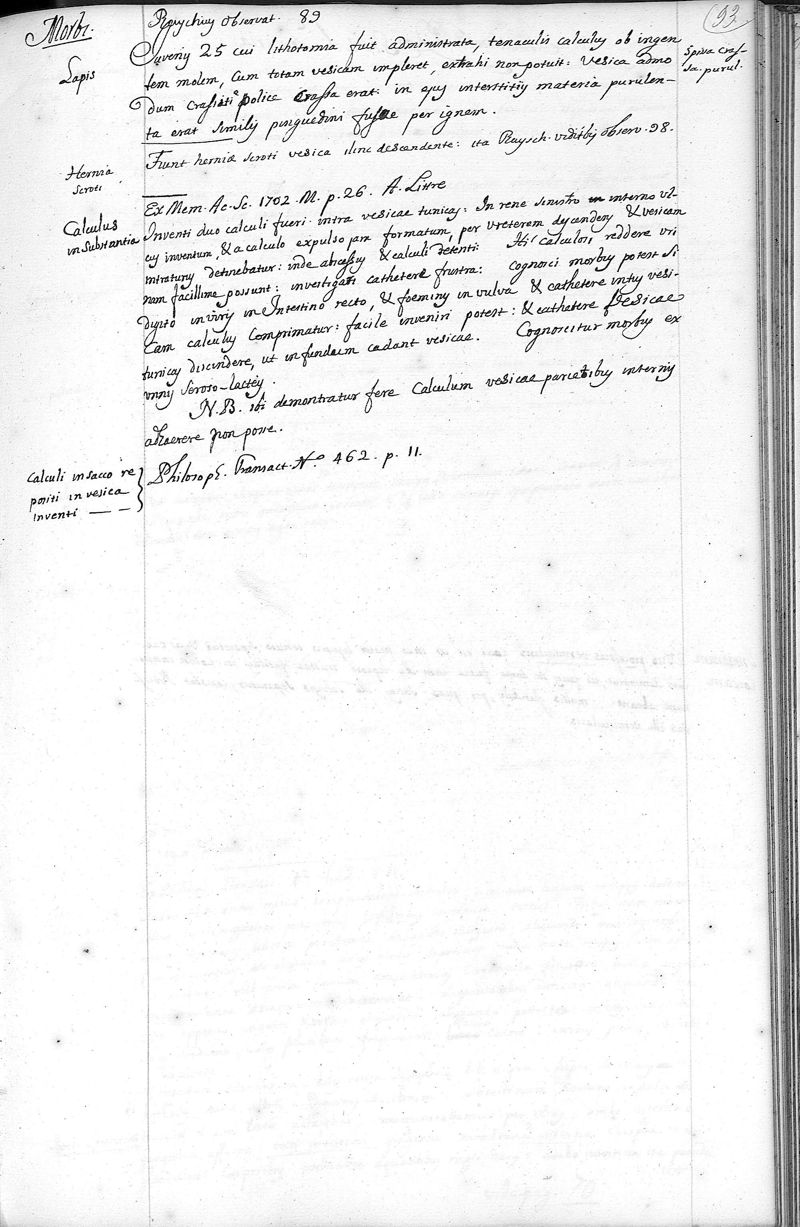 93
Morbi.
Ruyschius observat. 89
Lapis
Juvenis 25 cui lithotomia fuit administrata, tenaculis calculus ob ingen
tem molem, cum totam vesicam impleret, extrahi non potuit: vesica admo
dum crassa police crassa erat: in ejus interstitiis materia purulen-
ta erat similis pinguedini fusae per ignem.
Spissa cras-
sa. purul.
Hernia
scroti
Fiunt herniae scroti vesica illinc descendente: ita Ruysch. vidit observ. 98.
Ex Mem. Ac. Sc. 1702. M. p. 26. A. Littre
Calculus
in substantia
Inventi duo calculi fuer. intra vesicae tunicas: In rene sinistro interno ul-
cus inventum, & a calculo expulso jam formatum, per ureterem descendens & vesicam
intraturus detinebatur: inde abscessus & calculi detenti. Hi calculosi reddere uri
nam facillime possunt: investigati cathetere frustra: cognosci morbus potest si
digito in viris in Intestino recto, & foeminis in vulva & cathetere intus vesi-
cam calculus comprimatur: facile inveniri potest: & cathetere vesicae
tunicas discindere, ut in fundum cadant vesicae. Cognoscitur morbus ex
urinis seroso-lacteis.
N.B. ibi demontratur fere calculum vesicae parietibus internis
adhaerere non posse.
Calculi in sacco re
positi in vesica
inventi — —
Philosoph. Transact. No. 462. p. 11.